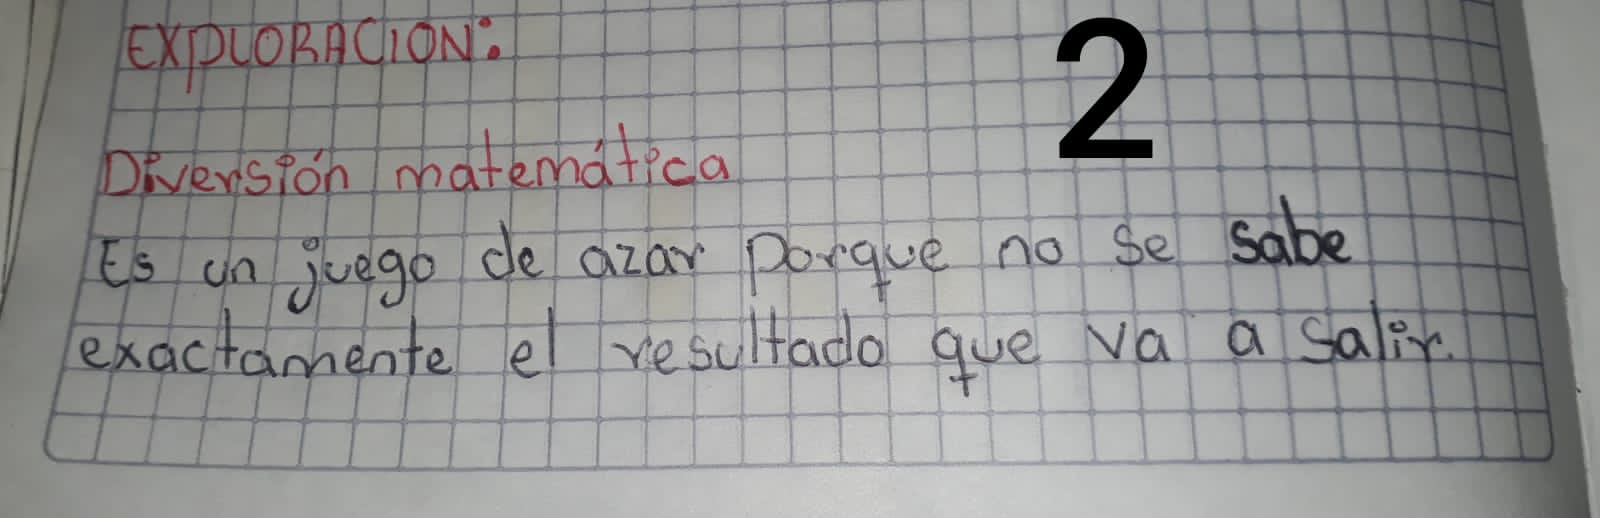 EXPLORACION:
2
Diversión matemática
Es un juego de azar porque no se sabe
exactamente el resultado que va a salir.